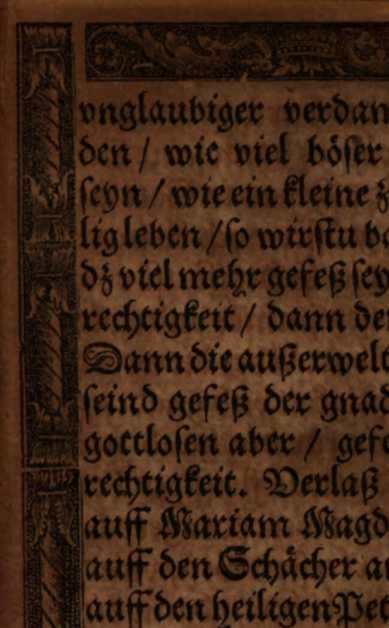 vnglaubiger verdan
den / wie viel böser
seyn / wie ein kleine z
lig leben / so wirstu be
dz viel mehr gefeß sey
rechtigkeit / dann de
Dann die außerwelt
seind gefeß der gnad
gottlosen aber / gefe
rechtigkeit. Verlaß
auff Mariam Magd
auff den Schächer a
auff den heiligen Pet